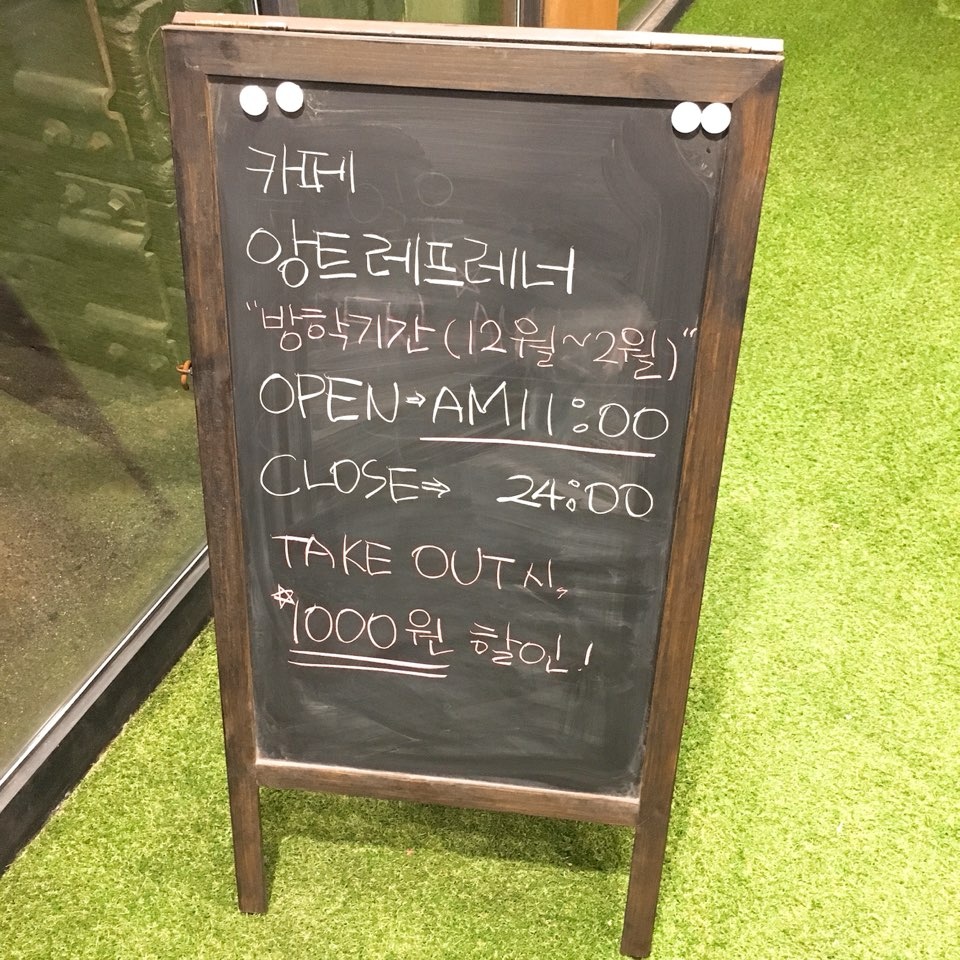 카페
앙트레프레너
"방학기간(12월~2월)"
OPEN⇒AM11:00
CLOSE⇒ 24:00
TAKE OUT시,
☆1000원 할인!